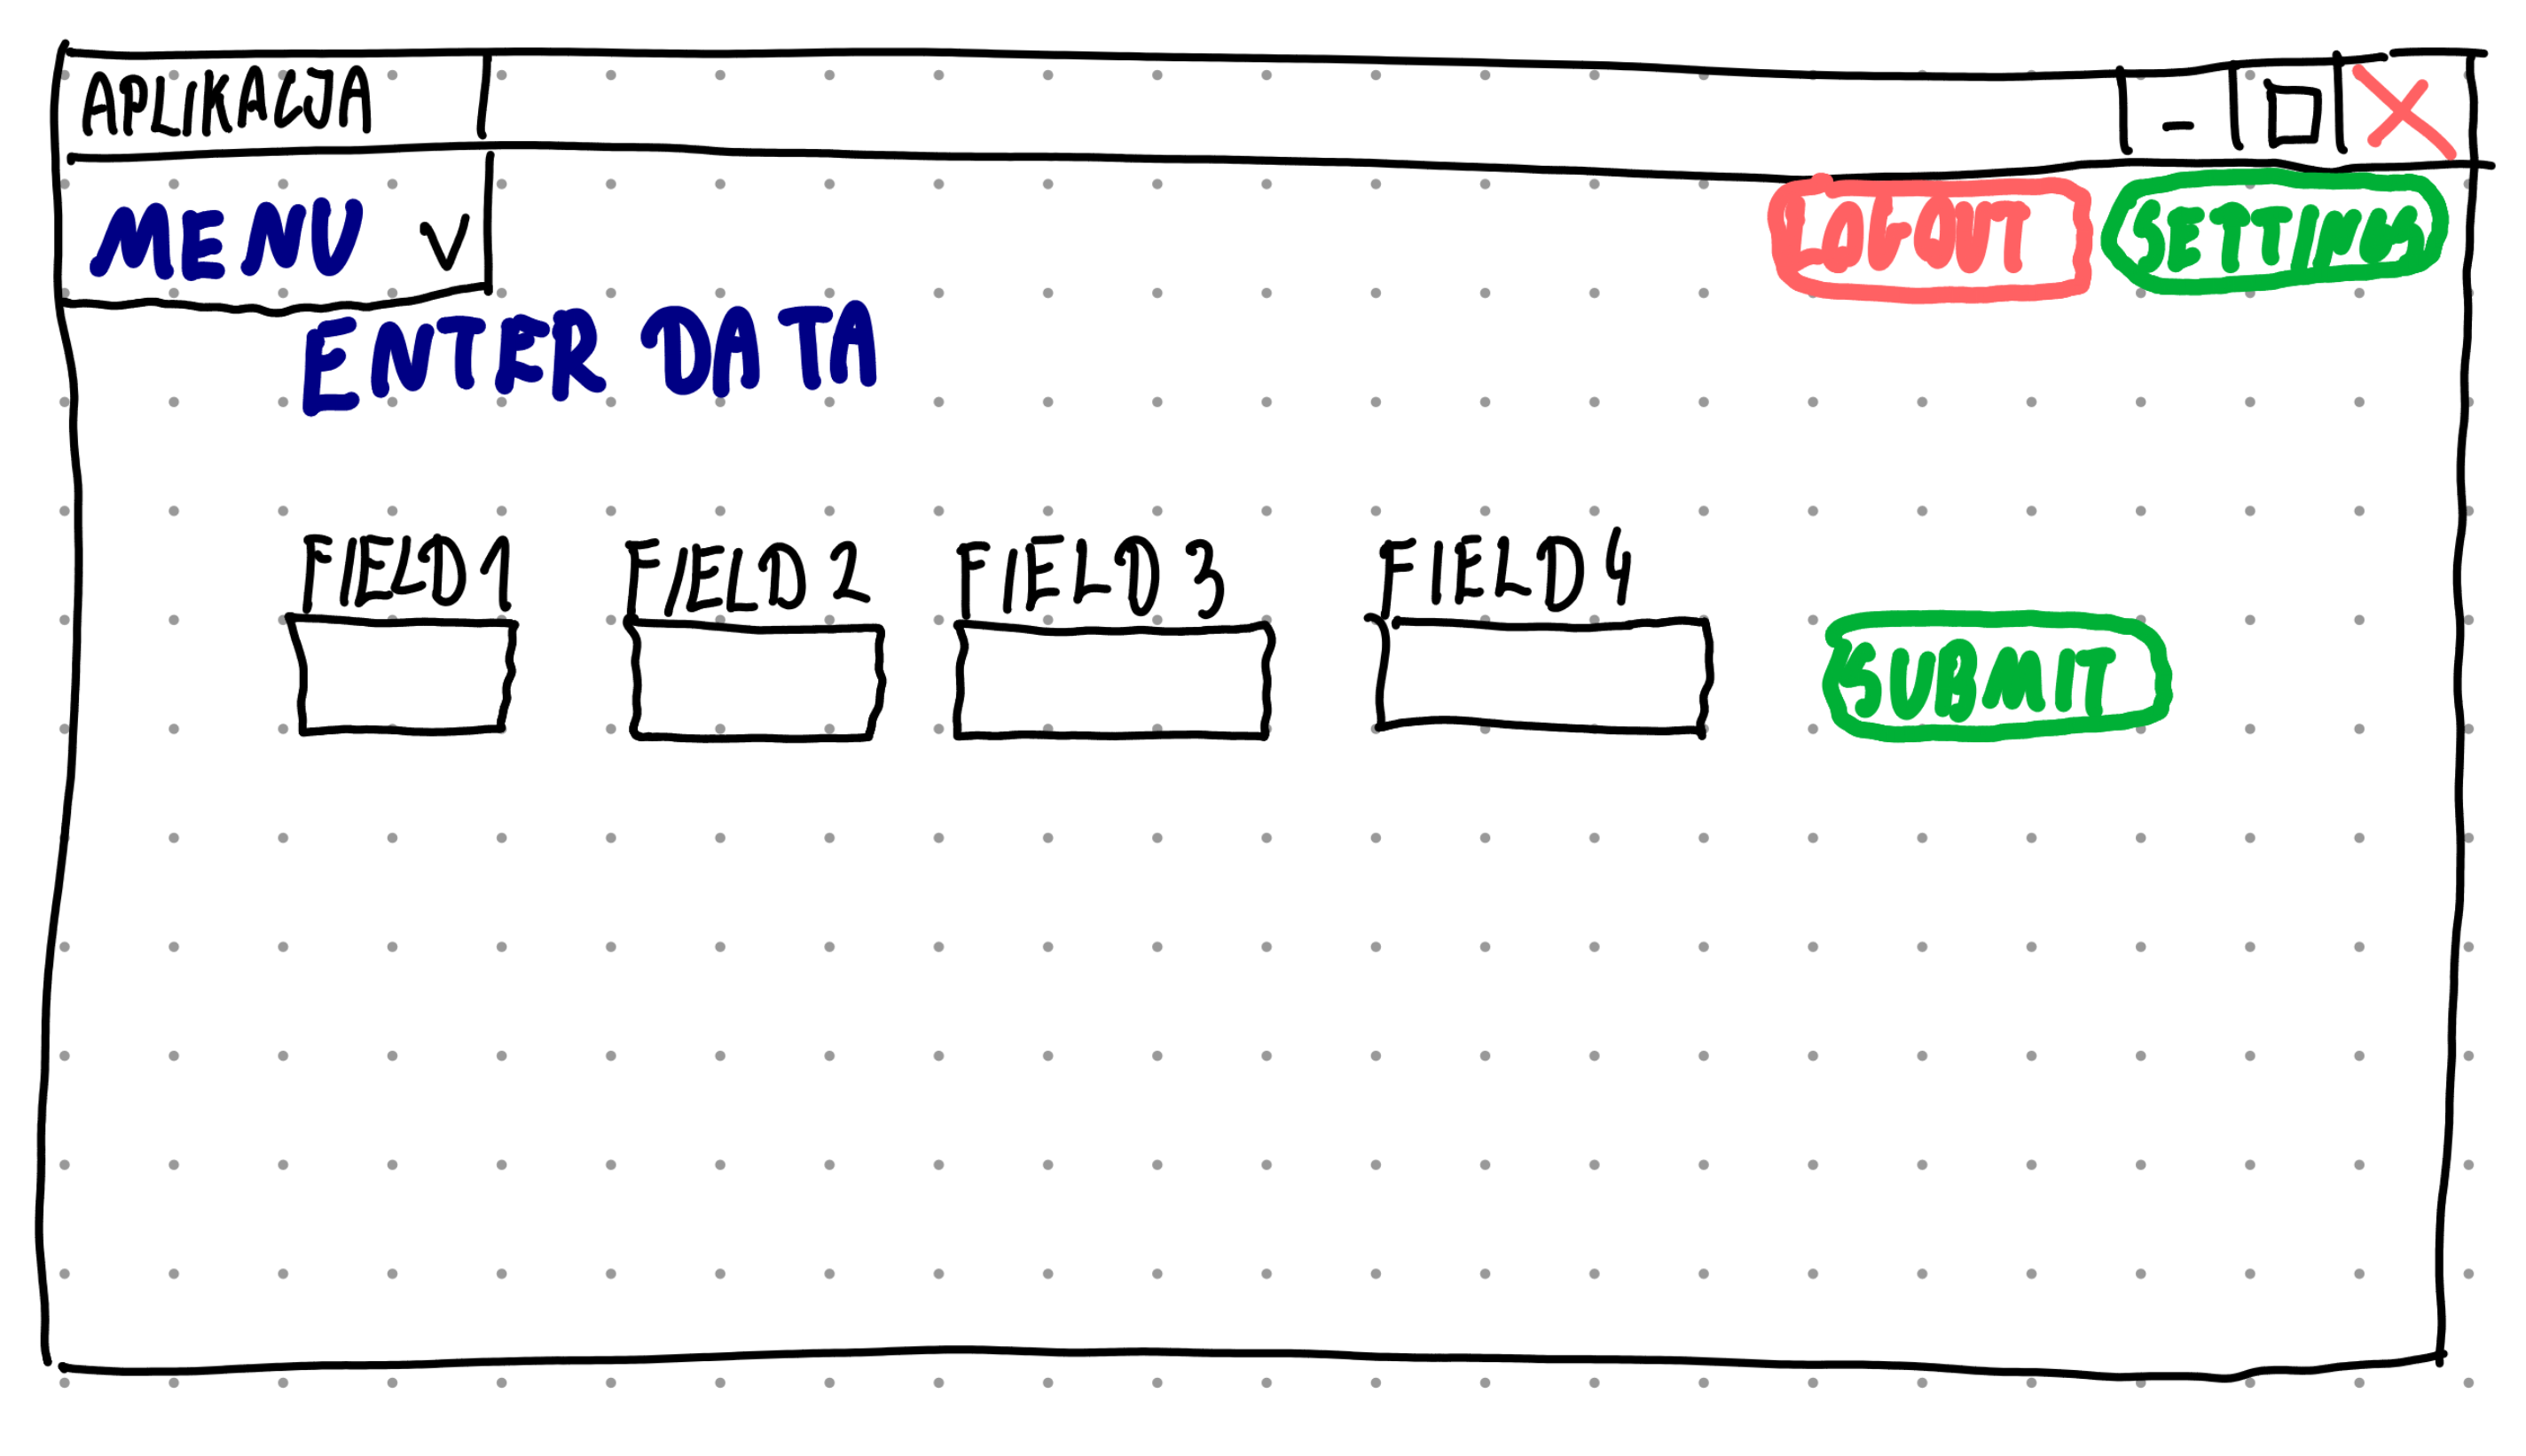 APLIKACJA
MENU V
LOGOUT SETTINGS
ENTER DATA
FIELD1 FIELD2 FIELD3 FIELD4
SUBMIT